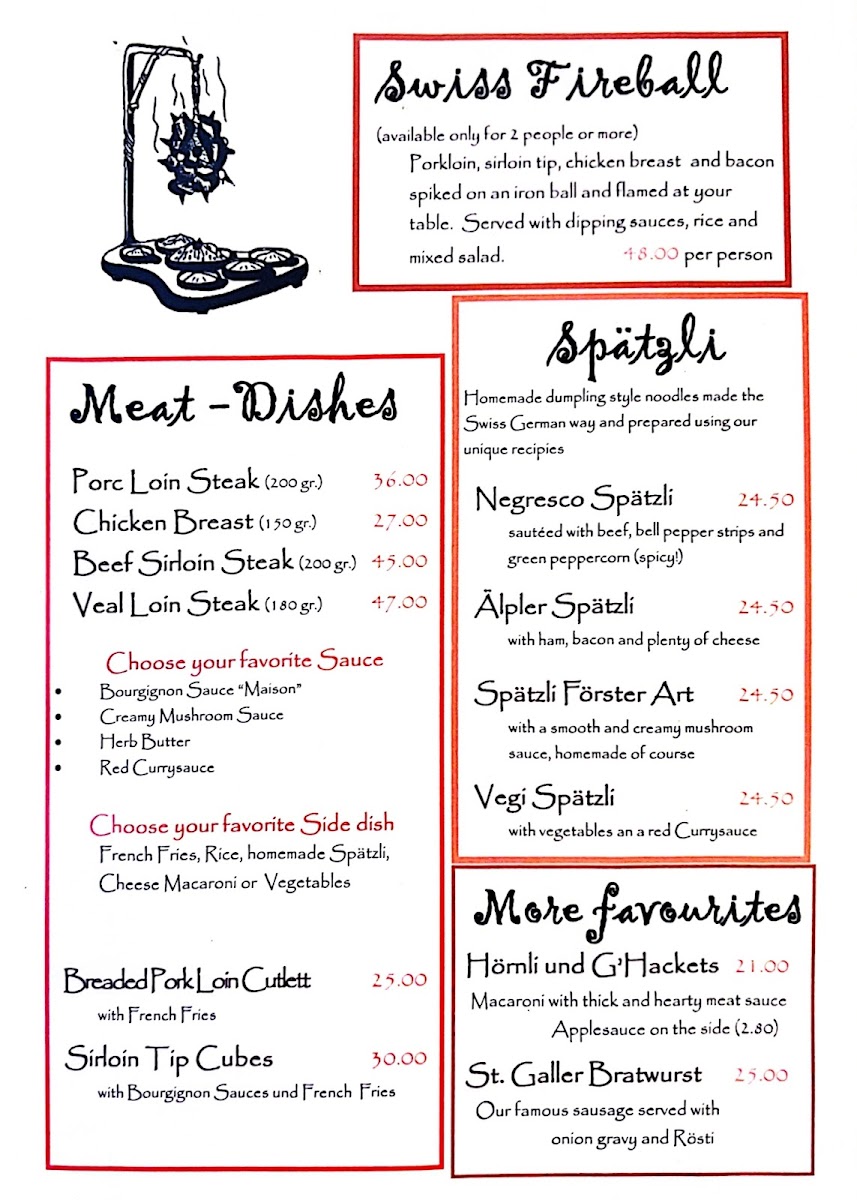 Swiss Fireball
(available only for 2 people or more)
Porkloin, sirloin tip, chicken breast and bacon
spiked on an iron ball and flamed at your
table. Served with dipping sauces, rice and
mixed salad. 48.00 per person
Meat - Dishes
Porc Loin Steak (200 gr.) 36.00
Chicken Breast (150 gr.) 27.00
Beef Sirloin Steak (200 gr.) 45.00
Veal Loin Steak (180 gr.) 47.00
Choose your favorite Sauce
• Bourgignon Sauce “Maison”
• Creamy Mushroom Sauce
• Herb Butter
• Red Currysauce
Choose your favorite Side dish
French Fries, Rice, homemade Spätzli,
Cheese Macaroni or Vegetables
Breaded Pork Loin Cutlett 25.00
with French Fries
Sirloin Tip Cubes 30.00
with Bourgignon Sauces und French Fries
Spätzli
Homemade dumpling style noodles made the
Swiss German way and prepared using our
unique recipies
Negresco Spätzli 24.50
sautéed with beef, bell pepper strips and
green peppercorn (spicy!)
Älpler Spätzli 24.50
with ham, bacon and plenty of cheese
Spätzli Förster Art 24.50
with a smooth and creamy mushroom
sauce, homemade of course
Vegi Spätzli 24.50
with vegetables an a red Currysauce
More favourites
Hörnli und G'Hackets 21.00
Macaroni with thick and hearty meat sauce
Applesauce on the side (2.80)
St. Galler Bratwurst 25.00
Our famous sausage served with
onion gravy and Rösti